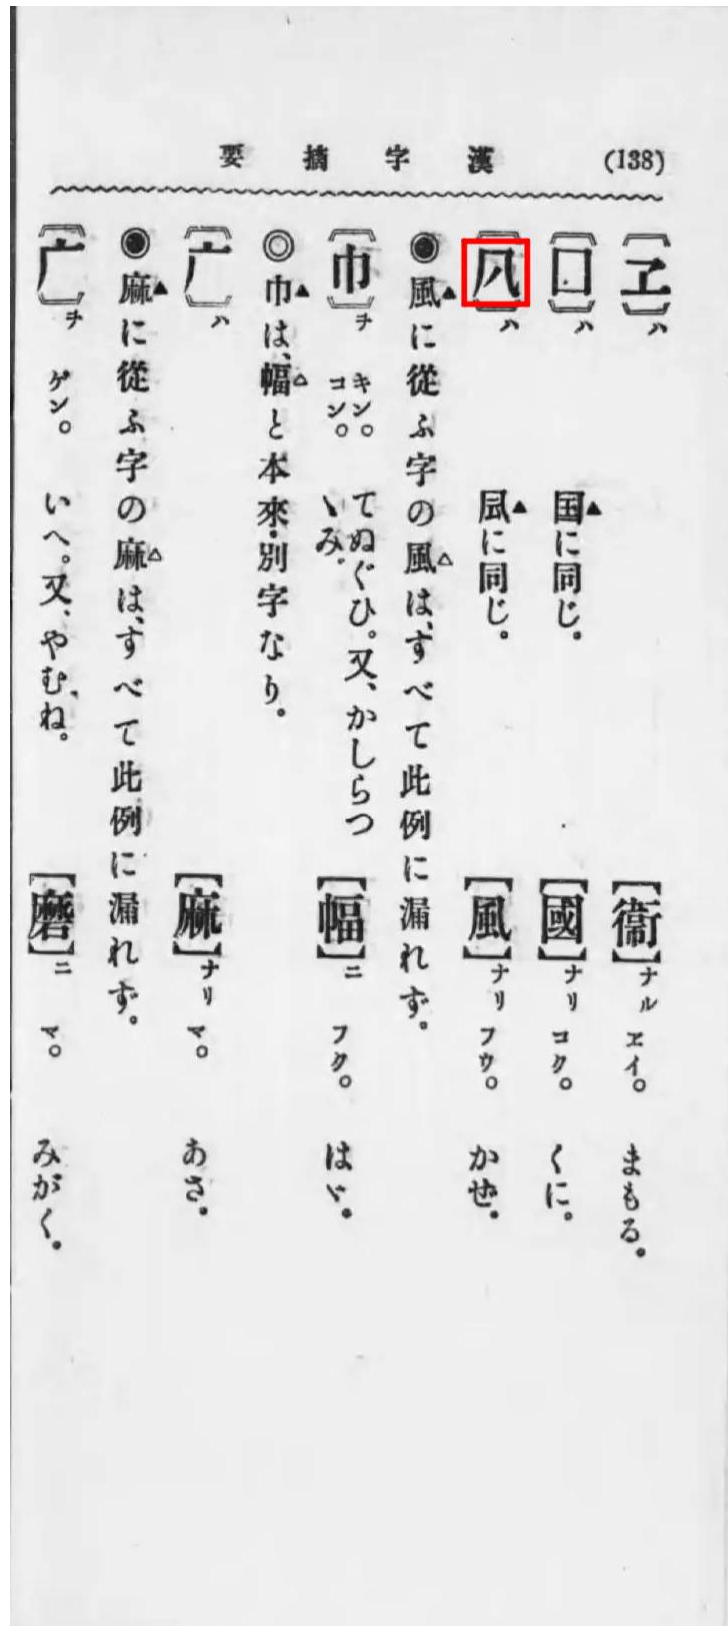 (138) 漢字摘要
〔ヱ〕ハ 【衞】ナル ヱイ。 まもる。
〔囗〕ハ 国に同じ。 【國】ナリ コク。 くに。
〔〕ハ に同じ。 【風】ナリ フウ。 かぜ。
◉風に從ふ字の風は、すべて此例に漏れず。
〔巾〕チ キン。コン。 てぬぐひ。又、かしらつゝみ。 【幅】ニ フク。 はゞ。
◎巾は、幅と本來別字なり。
〔广〕ハ 【麻】ナリ マ。 あさ。
◉麻に從ふ字の麻は、すべて此例に漏れず。
〔广〕チ ゲン。 いへ。又、やむね。 【磨】ニ マ。 みがく。